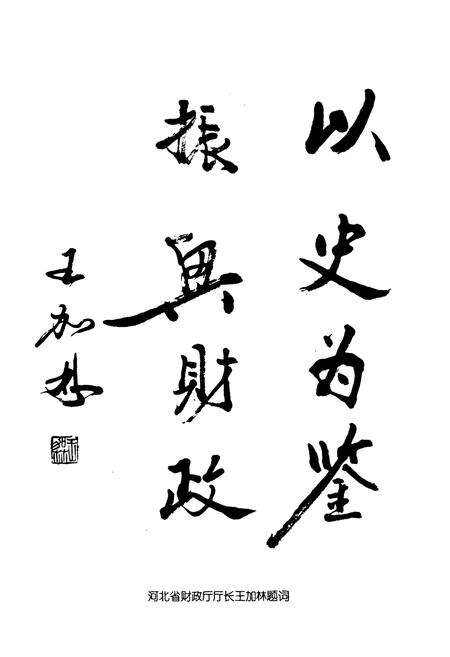 以史为鉴
振興財政
王加林
河北省财政厅厅长王加林题词